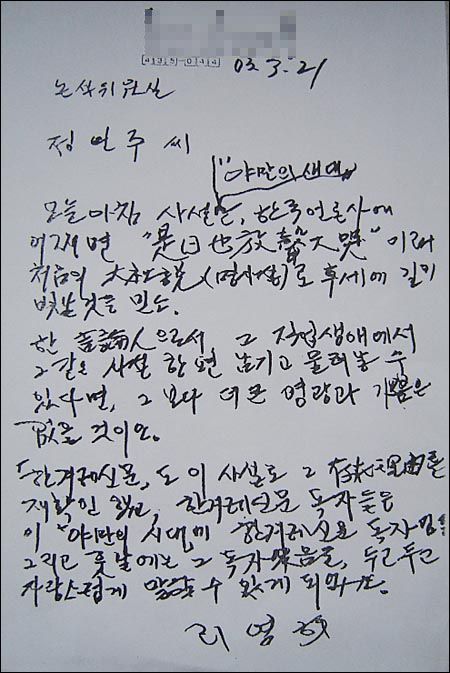 03. 3. 21
논설위원실
정연주 씨
"야만의 시대"
오늘 아침 사설은, 한국언론사에
어쩌면 "是日也放聲大哭" 이래
처음의 大社說 (명사설)로 후세에 길이
빛날 것을 믿소.
한 言論人으로서, 그 직업생애에서
그같은 사설 한 편 남기고 물러날 수
있다면, 그보다 더 큰 영광과 기쁨은
없을 것이오.
「한겨레신문」도 이 사설로 그 存在理由를
재확인 했고, 한겨레신문 독자들은
이 "야만의 시대"에 한겨레신문 독자임
그리고 훗날에는 그 독자였음을, 두고두고
자랑스럽게 말할 수 있게 되었소.
리영희